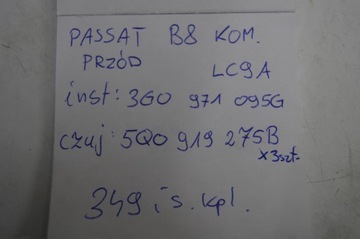 PASSAT B8 KOM.
PRZÓD LC9A
inst: 3G0 971 095G
czuj: 5Q0 919 275B
x3szt.
349 i s. kpl.